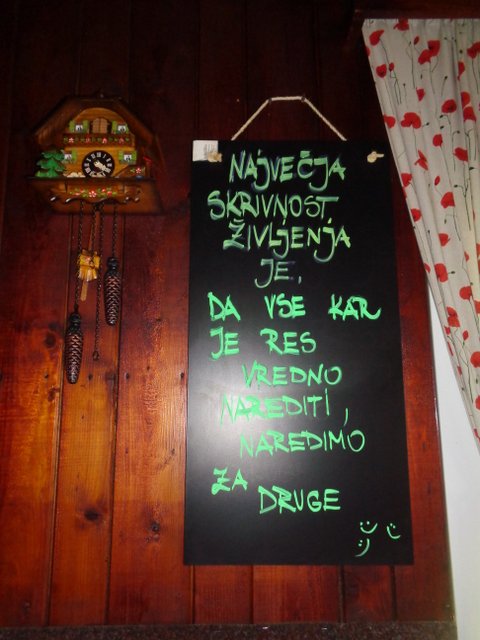 NAJVEČJA
SKRIVNOST
ŽIVLJENJA
JE,
DA VSE KAR
JE RES
VREDNO
NAREDITI,
NAREDIMO
ZA
DRUGE